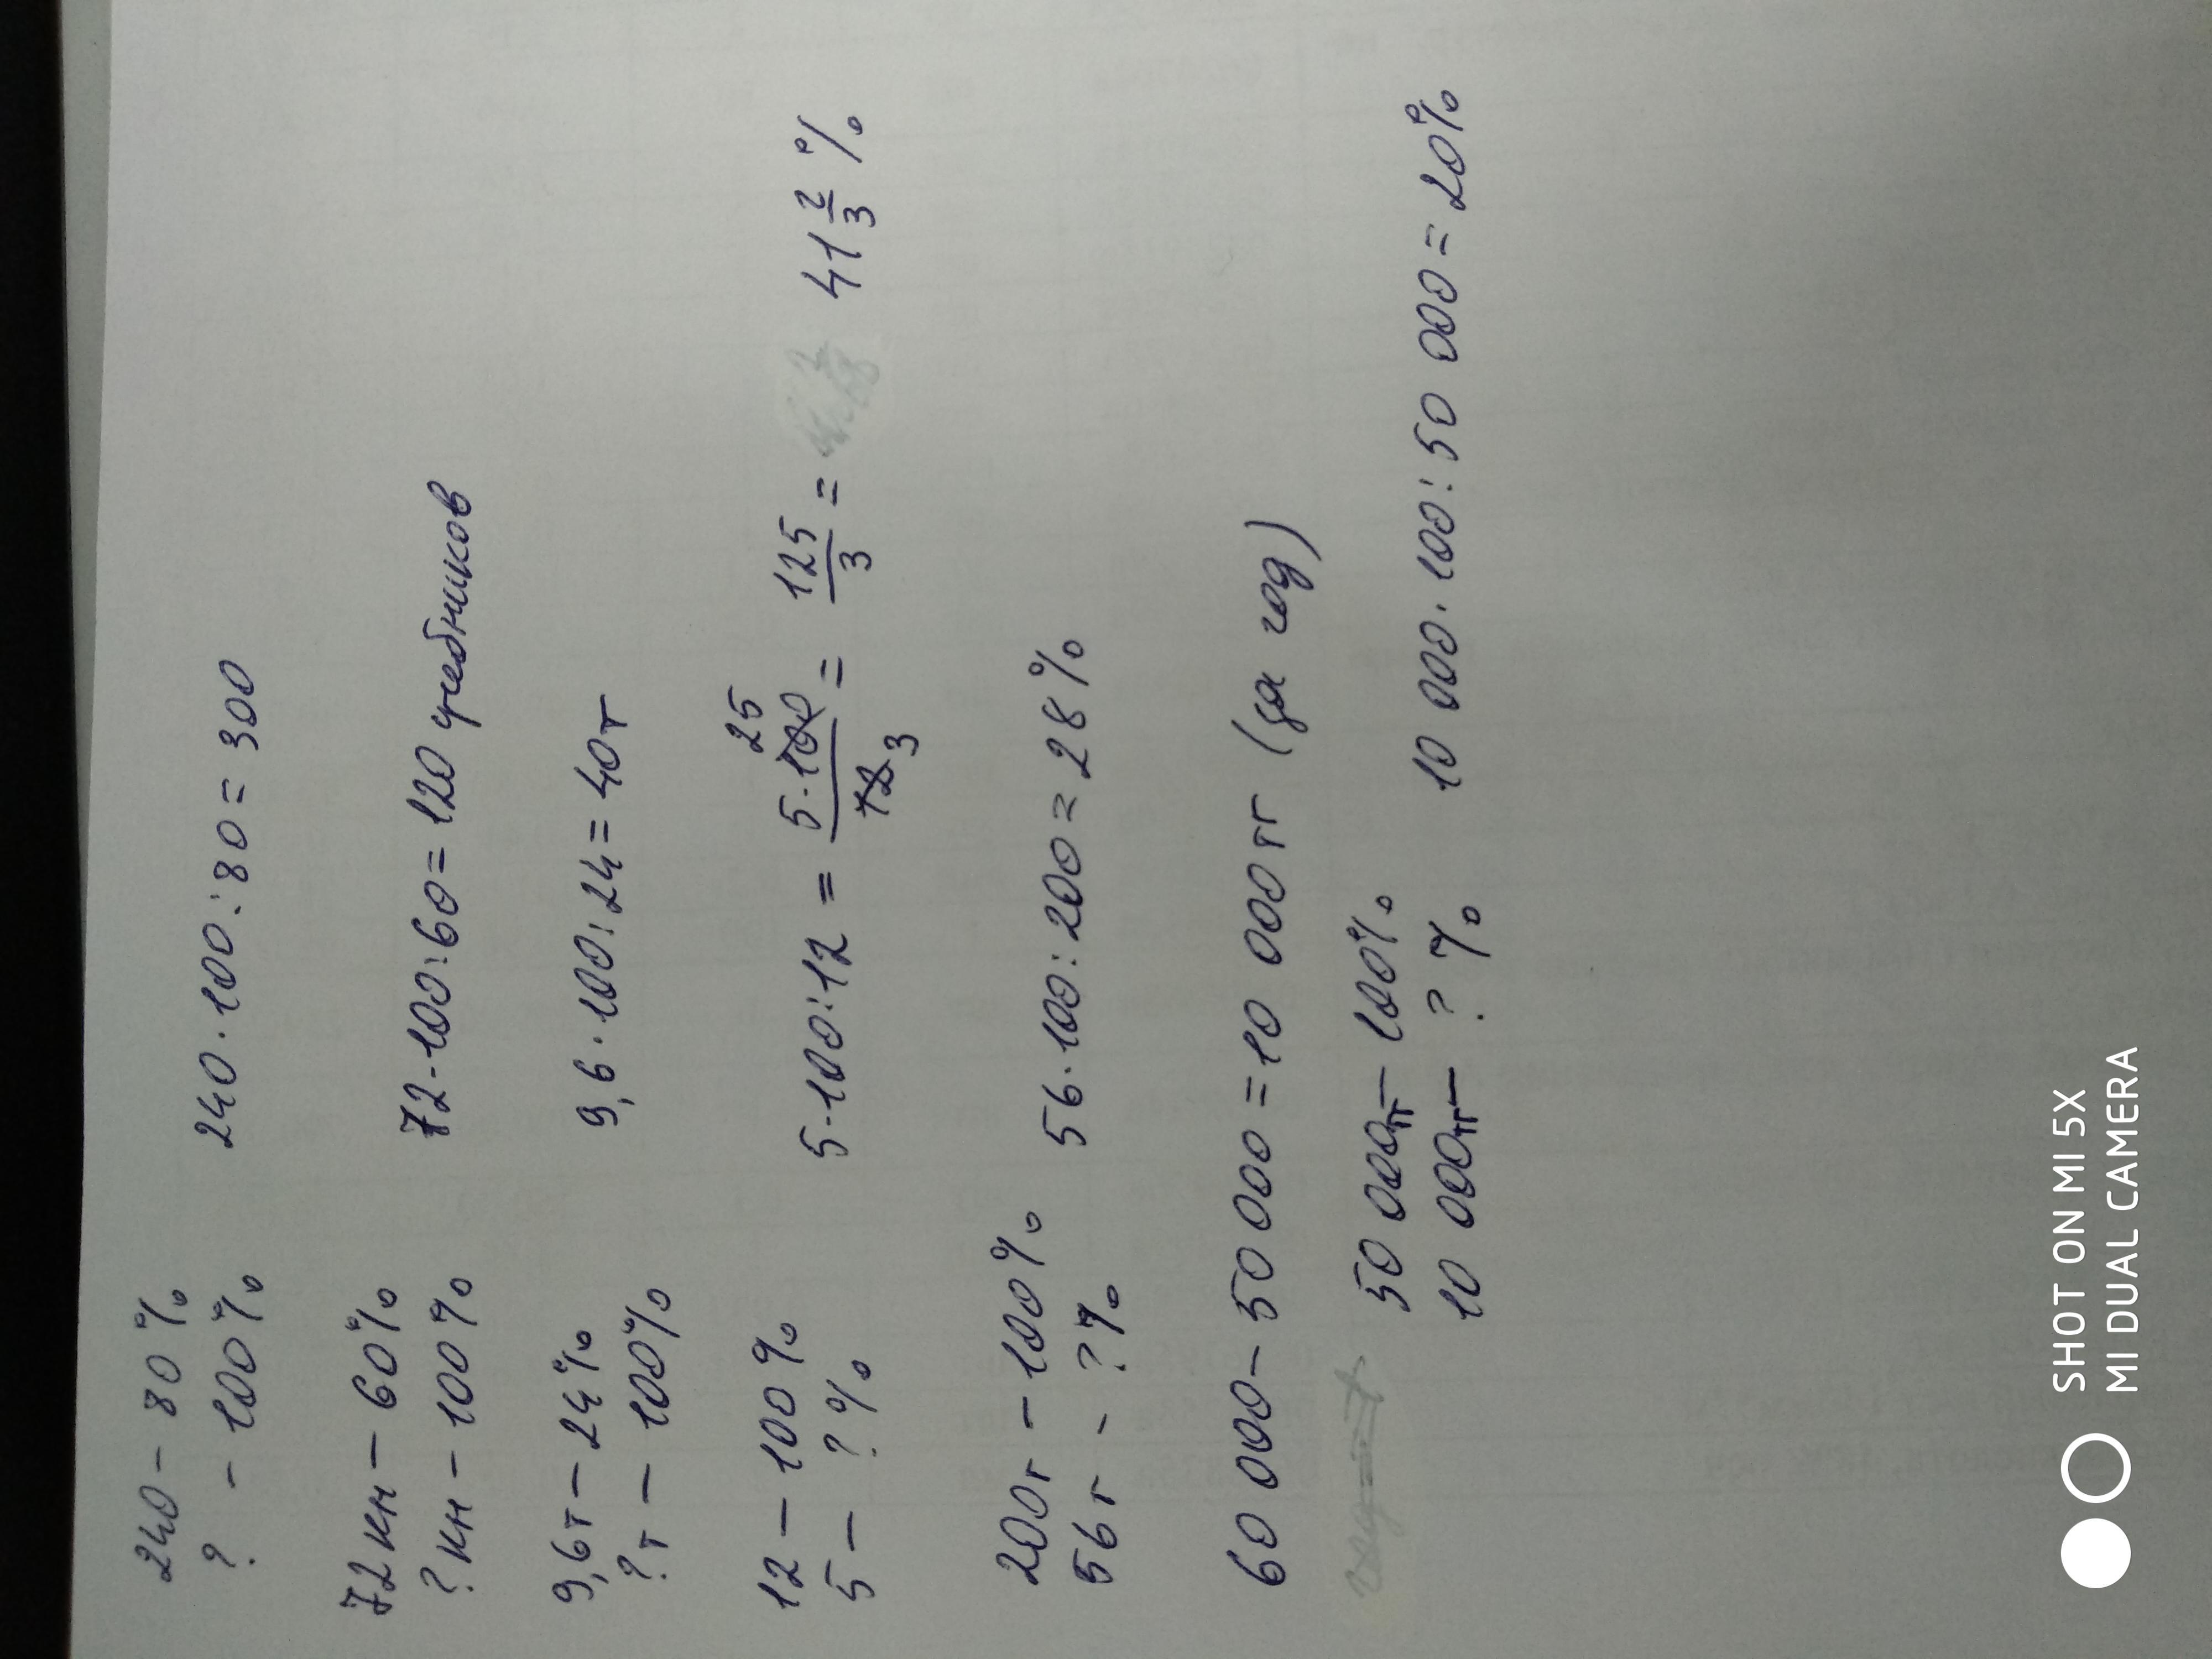 240 – 80%
? – 100%
240 · 100 : 80 = 300
72 кн – 60%
? кн – 100%
72 · 100 : 60 = 120 учебников
9,6 т – 24%
? т – 100%
9,6 · 100 : 24 = 40 т
12 – 100%
5 – ? %
5 · 100 : 12 = 5 · 100 25 / 12 3 = 125/3 = 41 2/3 %
200 г – 100%
56 г – ? %
56 · 100 : 200 = 28%
60 000 – 50 000 = 10 000 тг (за год)
50 000 тг – 100%
10 000 тг – ? %
10 000 · 100 : 50 000 = 20%
SHOT ON MI 5X
MI DUAL CAMERA